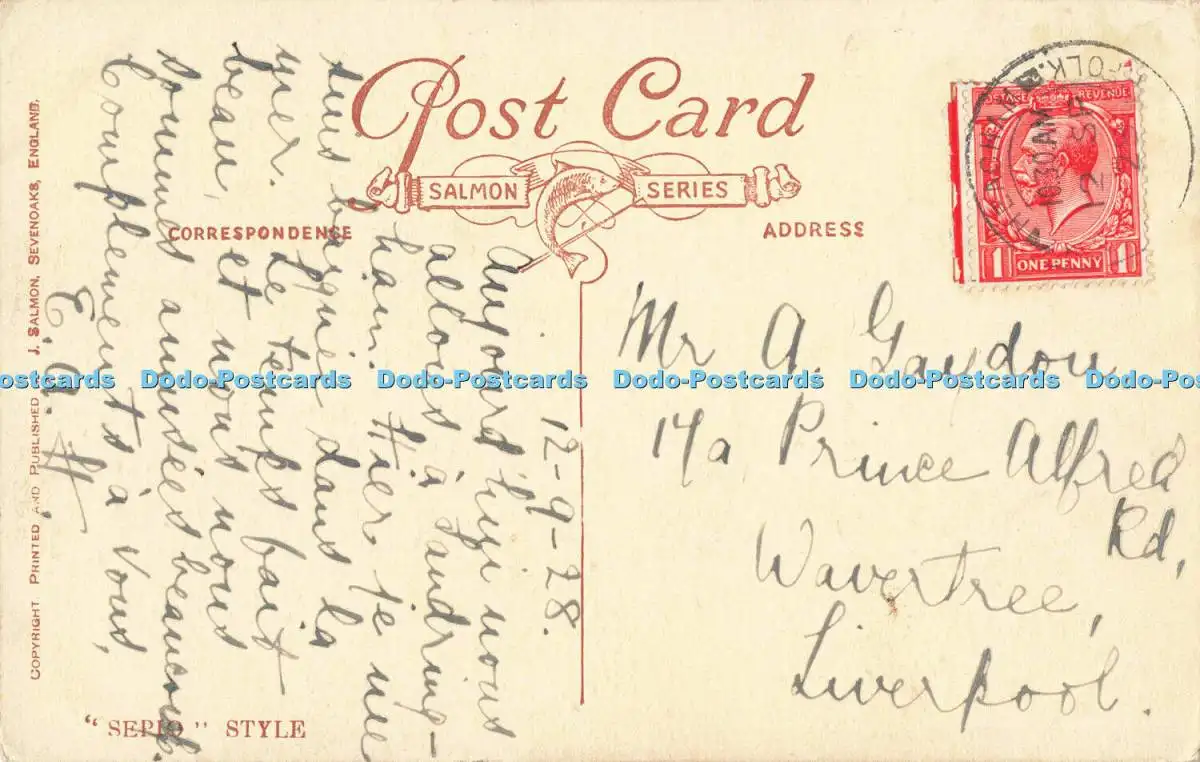 Post Card
SALMON SERIES
CORRESPONDENCE
ADDRESS
POSTAGE REVENUE
1 ONE PENNY 1
10.30 AM
12 SP
12-9-28.
Aujourd'hui nous
allons à Sandring-
ham. Hier, je me
suis baignie dans la
mer. Le temps fait
beau, et nous nous
sommes amusées beaucoup.
Complements à vous,
E. A. H
Mr A. Gaydon
17a Prince Alfred
Rd,
Wavertree,
Liverpool.
COPYRIGHT. PRINTED AND PUBLISHED J. SALMON, SEVENOAKS, ENGLAND.
"SEPIO" STYLE
Dodo-Postcards Dodo-Postcards Dodo-Postcards Dodo-Postcards